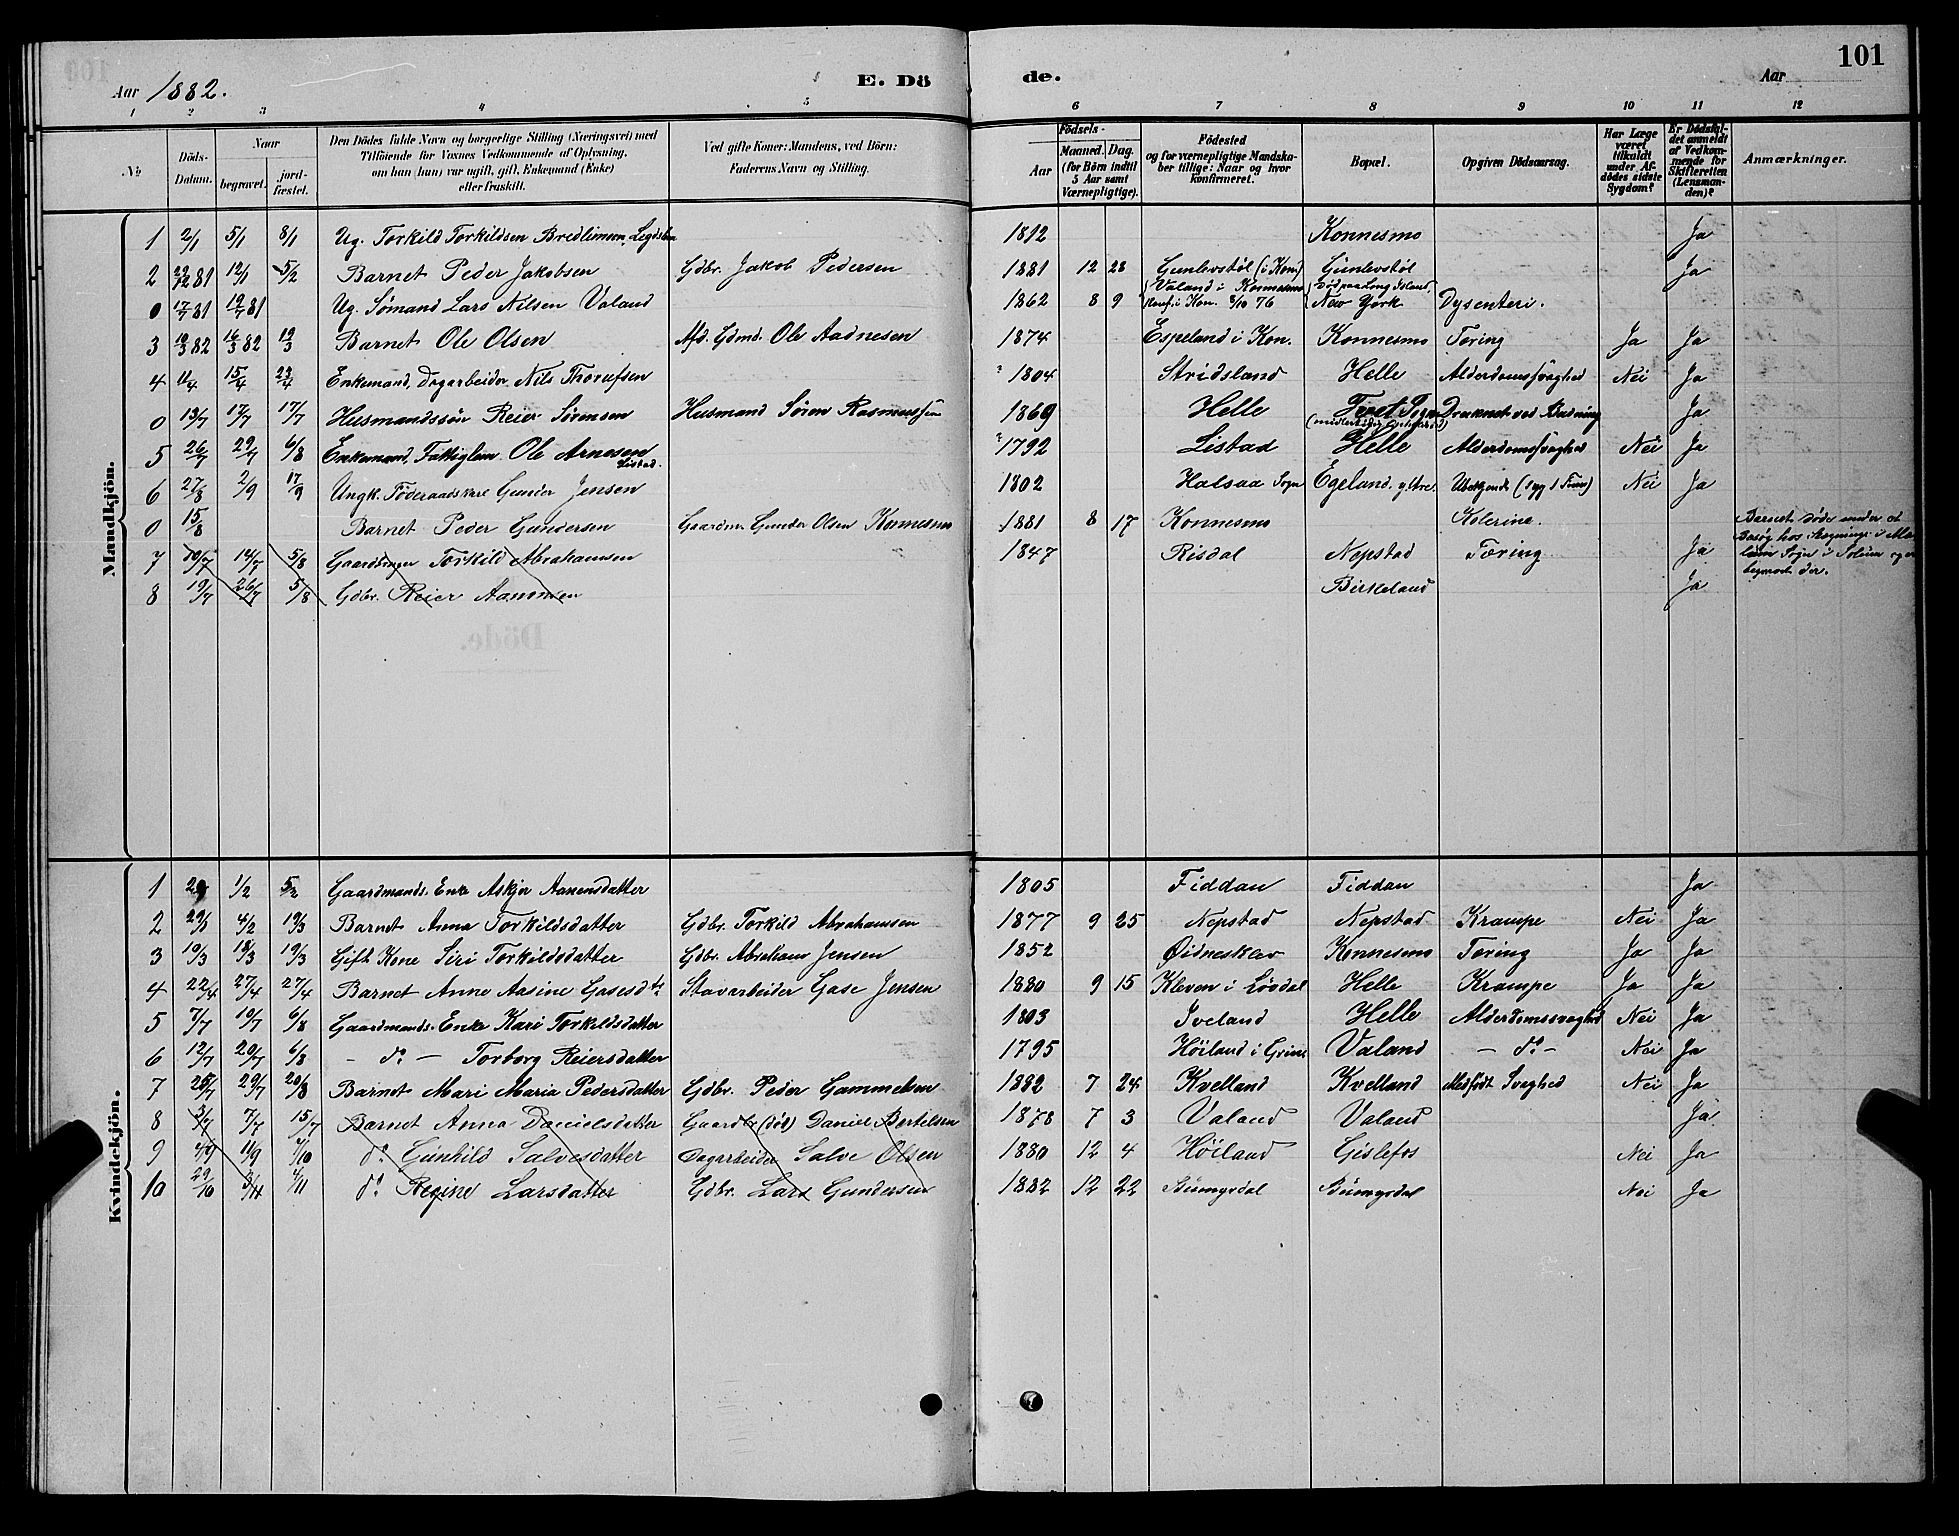 101
Aar 1882. E. Dö de. Aar
1 2 3 4 5 6 7 8 9 10 11 12
No
Döds-Datum.
Naar
begravet. jordfæstet.
Den Dödes fulde Navn og borgerlige Stilling (Næringsvei) med
Tilföiende for Voxnes Vedkommende af Oplysning.
om han (hun) var ugift, gift, Enkemand (Enke)
eller fraskilt.
Ved gifte Koner: Mandens, ved Börn:
Faderens Navn og Stilling.
Födsels-
Aar Maaned. Dag.
(for Börn indtil
5 Aar samt
Værnepligtige).
Födested
og for værnepligtige Mandska-
ber tillige: Naar og hvor
konfirmeret.
Bopæl.
Opgiven Dödsaarsag.
Har Læge
været
tilkaldt
under Af-
dödes sidste
Sygdom?
Er Dödsfal-
det anmeldt
af Vedkom-
mende for
Skifteretten
(Lensman-
den)?
Anmærkninger.
Mandkjön.
1 2/1 5/1 8/1 Ug. Torkild Torkildsen Bredlimoen, Legdslem 1812 Konnesmo Ja
2 29/12 81 12/1 5/2 Barnet Peder Jakobsen Gdbr. Jakob Pedersen 1881 12 28 Gunlevstøl (i Kon) Gunlevstøl Ja
0 17/7 81 19/7 81 Ug. Sømand Lars Nilsen Valand 1862 8 9 Valand i Konnesmo Konf. i Kon. 8/10 76 Død paa Long Island, New York Dysenteri.
3 10/3 82 16/3 82 19/3 Barnet Ole Olsen Afd. Gdmd. Ole Aadnesen 1874 Espeland i Kon. Konnesmo Tæring Ja Ja
4 11/4 15/4 23/4 Enkemand, Dagarbeider Nils Thorufsen ? 1804 Stridsland Helle Alderdomssvaghed Nei Ja
0 13/7 17/7 17/7 Husmandssøn Reier Sørensen Husmand Søren Rasmussen 1869 Helle Sogn Druknet ved Badning Ja
5 26/7 29/7 6/8 Enkemand, Fattiglem Ole Arnesen Listad. ? 1792 Listad Helle Alderdomssvaghed Nei Ja
6 27/8 2/9 17/9 Ungk. Føderaadskarl Gunder Jensen 1802 Halsaa Sogn Egeland, ytre. Ubekjendt (syg 1 Time) Nei Ja
0 15/8 Barnet Peder Gundersen Gaardm. Gunder Olsen Konnesmo 1881 8 17 Konnesmo Kolerine. Barnet døde under et
Besøg hos i
Sogn i og er
begravet der.
7 10/7 14/7 5/8 Gaardbruger Torkild Abrahamsen 1847 Risdal Nepstad Tæring Ja
8 19/7 26/7 5/8 Gdbr. Reier Aanensen Birkeland Ja
Kvindekjön.
1 1/2 5/2 Gaardmands Enke Askjer Aanensdatter 1805 Fiddan Fiddan Ja
2 29/1 4/2 19/3 Barnet Anna Torkildsdatter Gdbr. Torkild Abrahamsen 1877 9 25 Nepstad Nepstad Krampe Nei Ja
3 10/3 18/3 19/3 Gift Kone Siri Torkildsdatter Gdbr. Abraham Jensen 1852 Øidneskler Konnesmo Tæring Ja Ja
4 22/4 27/4 27/4 Barnet Anne Aasine Gasesdtr Stavarbeider Gase Jensen 1880 9 15 Kleven i Løvdal Helle Krampe Ja Ja
5 7/7 10/7 6/8 Gaardmands Enke Kari Torkildsdatter 1803 Iveland Helle Alderdomssvaghed Nei Ja
6 12/7 20/7 6/8 - do - Torborg Reiersdatter 1795 Høiland i Grin Valand - do - Nei Ja
7 25/7 29/7 20/8 Barnet Mari Maria Pedersdatter Gdbr. Peder Gammelsen 1882 7 24 Kvelland Kvelland Medfødt Svaghed Nei Ja
8 3/7 7/7 15/7 Barnet Anna Danielsdatter Gaardbr. (død) Daniel Bertelsen 1878 7 3 Valand Valand Ja
9 4/9 11/9 1/10 do Gunhild Salvesdatter Dagarbeider Salve Olsen 1880 12 4 Høiland Gislefos Nei Ja
10 29/10 3/11 4/11 do Regine Larsdatter Gdbr. Lars Gundersen 1882 12 22 Nei Ja